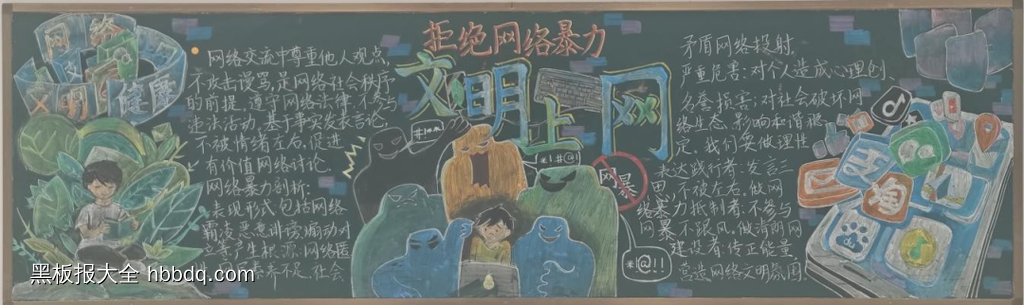 拒绝网络暴力
文明上网
网络
文明 健康
网络交流中尊重他人观点,
不攻击谩骂,是网络社会秩序
的前提。遵守网络法律,不参与
违法活动。基于事实发表言论,
不被情绪左右,促进
有价值网络讨论
网络暴力剖析:
表现形式包括网络
霸凌恶意诽谤煽动对
网络匿
不足,社会
#!**
*!#@
网暴
*@!!
矛盾网络投射.
严重危害:对个人造成心理创
名誉损害;对社会破坏网
络生态,影响和谐稳
定。我们要做理性
表达践行者,发言三
思,不被左右,做网
络暴力抵制者,不参与
网暴,不跟风,做清朗网
建设者,传正能量,
营造网络文明氛围
支
淘
黑板报大全 hbbdq.com